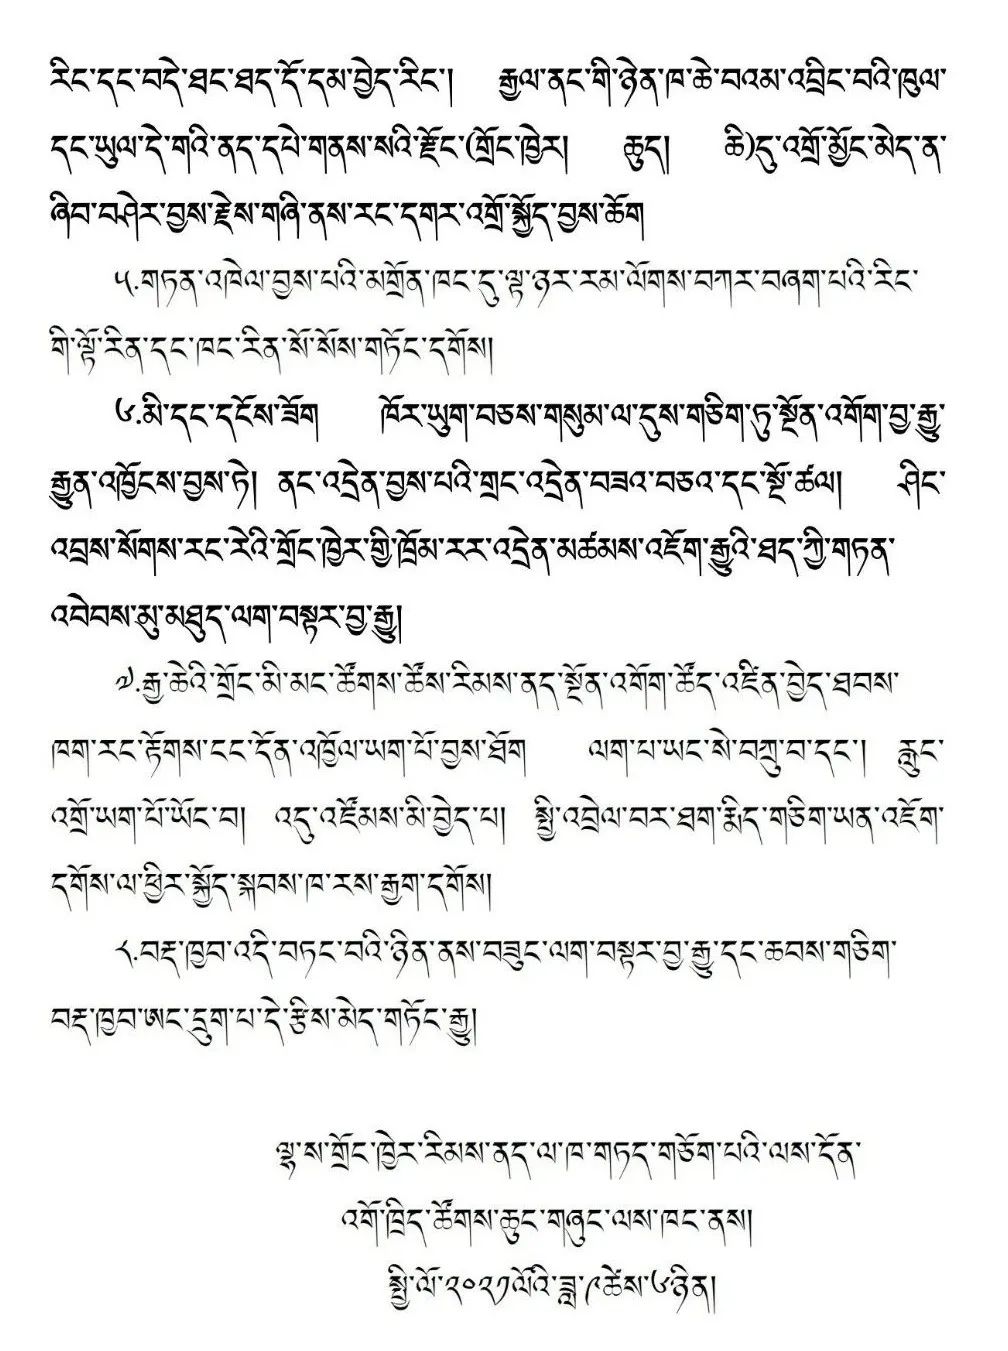 རིང་དང་བདེ་ཐང་ཐད་དོ་དམ་བྱེད་རིང་། རྒྱལ་ནང་གི་ཉེན་ཁ་ཆེ་བའམ་འབྲིང་བའི་ཁུལ་
དང་ཡུལ་དེ་གའི་ནད་དཔེ་གནས་སའི་རྫོང་(གྲོང་ཁྱེར། ཆུད། ཆི)དུ་འགྲོ་མྱོང་མེད་ན་
ཞིབ་བཤེར་བྱས་རྗེས་གཞི་ནས་རང་དགར་འགྲོ་སྐྱོད་བྱས་ཆོག
༥.གཏན་འཁེལ་བྱས་པའི་མགྲོན་ཁང་དུ་ལྟ་ཉར་རམ་ལོགས་བཀར་བཞག་པའི་རིང་
གི་ལྟོ་རིན་དང་ཁང་རིན་སོ་སོས་གཏོང་དགོས།
༦.མི་དང་དངོས་ཟོག ཁོར་ཡུག་བཅས་གསུམ་ལ་དུས་གཅིག་ཏུ་སྔོན་འགོག་བྱ་རྒྱུ་
རྒྱུན་འཁྱོངས་བྱས་ཏེ། ནང་འདྲེན་བྱས་པའི་གྲང་འདྲེན་བཟའ་བཅའ་དང་སྔོ་ཚལ། ཤིང་
འབྲས་སོགས་རང་རེའི་གྲོང་ཁྱེར་གྱི་ཁྲོམ་རར་འདྲེན་མཚམས་འཇོག་རྒྱུའི་ཐད་ཀྱི་གཏན་
འབེབས་མུ་མཐུད་ལག་བསྟར་བྱ་རྒྱུ།
༧.རྒྱ་ཆེའི་གྲོང་མི་མང་ཚོགས་ཚོས་རིམས་ནད་སྔོན་འགོག་ཚོད་འཛིན་བྱེད་ཐབས་
ཁག་རང་རྟོགས་ངང་དོན་འཁྱོལ་ཡག་པོ་བྱས་ཐོག ལག་པ་ཡང་སེ་བཀྲུ་བ་དང་། རླུང་
འགྲོ་ཡག་པོ་ཡོང་བ། འདུ་འཛོམས་མི་བྱེད་པ། སྤྱི་འབྲེལ་བར་ཐག་རྨིད་གཅིག་ཡན་འཇོག་
དགོས་ལ་ཕྱིར་སྐྱོད་སྐབས་ཁ་རས་རྒྱག་དགོས།
༨.བརྡ་ཁྱབ་འདི་བཏང་བའི་ཉིན་ནས་བཟུང་ལག་བསྟར་བྱ་རྒྱུ་དང་ཆབས་གཅིག་
བརྡ་ཁྱབ་ཨང་དྲུག་པ་དེ་རྩིས་མེད་གཏོང་རྒྱུ།
ལྷ་ས་གྲོང་ཁྱེར་རིམས་ནད་ལ་ཁ་གཏད་གཅོག་པའི་ལས་དོན་
འགོ་ཁྲིད་ཚོགས་ཆུང་གཞུང་ལས་ཁང་ནས།
སྤྱི་ལོ་༢༠༢༡ལོའི་ཟླ་༩ཚེས་༦ཉིན།